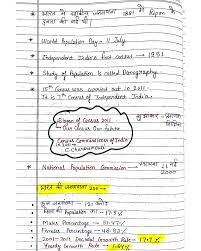 भारत में पहली जनगणना 1881 में Ripon के
द्वारा की गई थी।
* World Population Day - 11 July
* Independent India's first census → 1951
* Study of Population is called Demography.
* 15th Census was carried out in 2011.
It is 7th Census of Independent India.
Slogan of Census 2011 -
Our Census Our Future
Census Commissioner of India
C Chandramouli
* National Population Commission →
11 मई
2000
भारत की जनगणना 2011
कुल जनसंख्या - 121 करोड़
Population - 17.5%
Males Percentage - 51.47%
Female Percentage - 48.53%
2001-2011 Decadal Growth Rate - 17.7%
Yearly Growth Rate - 1.64%